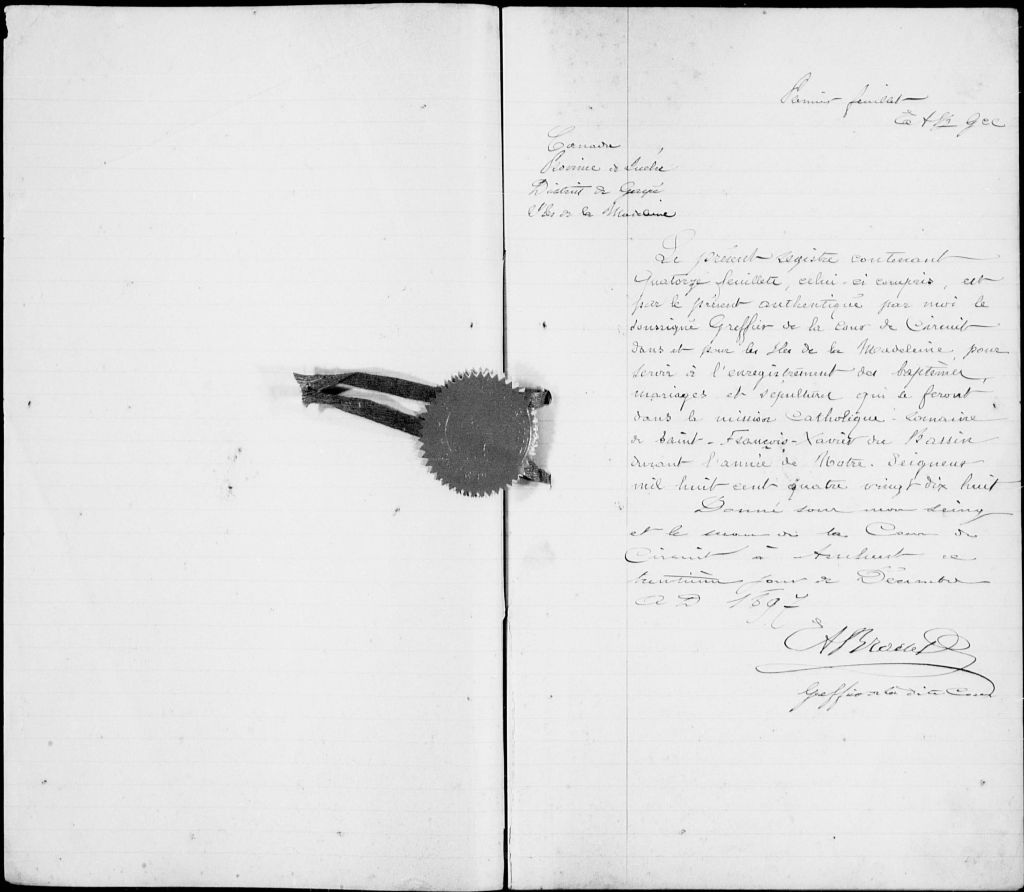 Premier feuillet
Canada
Province de Québec
District de Gaspé
Iles de la Madeleine
Le présent registre contenant
quatorze feuillets, celui-ci compris, est
par le présent authentiqué par moi le
soussigné Greffier de la cour de Circuit
dans et pour les Iles de la Madeleine, pour
servir à l'enregistrement des baptêmes,
mariages et sépultures qui se feront
dans la mission Catholique Romaine
de Saint-François-Xavier du Bassin
durant l'année de Notre-Seigneur
mil huit cent quatre vingt dix huit
Donné sous mon seing
et le sceau de la Cour de
Circuit à Amherst ce
trentième jour de Décembre
A D 1897
Greffier de la dite Cour